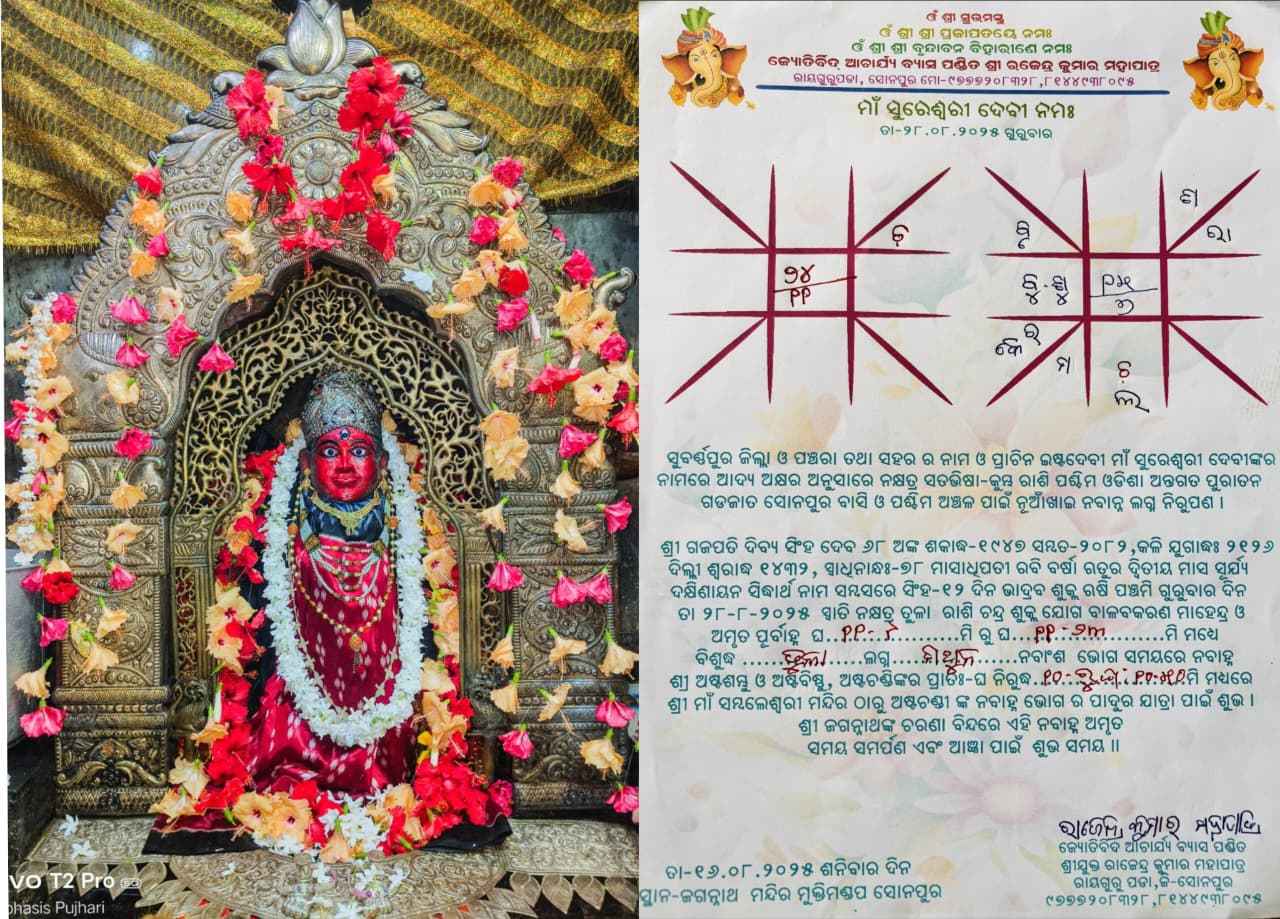 VO T2 Pro
phasis Pujhari
ଓଁ ଶ୍ରୀ ଗୁରୁମସ୍ତୁ
ଓଁ ଶ୍ରୀ ଶ୍ରୀ ପ୍ରଜାପତୟେ ନମଃ
ଓଁ ଶ୍ରୀ ଶ୍ରୀ ବୃନ୍ଦାବନ ବିହାରୀଣେ ନମଃ
ଜ୍ୟୋତିର୍ବିଦ୍ ଆଚାର୍ଯ୍ୟ ବ୍ୟାସ ପଣ୍ଡିତ ଶ୍ରୀ ରାଜେନ୍ଦ୍ର କୁମାର ମହାପାତ୍ର
ରାୟଗୁରୁପଡା, ସୋନପୁର ମୋ-୯୭୭୭୨୦୮୩୨୮,୮୧୪୪୯୩୮୦୯୫
ମାଁ ସୁରେଶ୍ୱରୀ ଦେବୀ ନମଃ
ତା-୨୮.୦୮.୨୦୨୫ ଗୁରୁବାର
ସୁବର୍ଣ୍ଣପୁର ଜିଲ୍ଲା ଓ ପଞ୍ଚରା ତଥା ସହର ର ନାମ ଓ ପ୍ରାଚିନ ଇଷ୍ଟଦେବୀ ମାଁ ସୁରେଶ୍ୱରୀ ଦେବୀଙ୍କର
ନାମରେ ଆଦ୍ୟ ଅକ୍ଷର ଅନୁସାରେ ନକ୍ଷତ୍ର ସତଭିଷା-କୁମ୍ଭ ରାଶି ପଶ୍ଚିମ ଓଡିଶା ଅନ୍ତଗତ ପୁରାତନ
ଗଡଜାତ ସୋନପୁର ବାସି ଓ ପଶ୍ଚିମ ଅଞ୍ଚଳ ପାଇଁ ନୂଆଁଖାଇ ନବାନ୍ନ ଲଗ୍ନ ନିରୁପଣ ।
ଶ୍ରୀ ଗଜପତି ଦିବ୍ୟ ସିଂହ ଦେବ ୬୮ ଅଙ୍କ ଶକାବ୍ଧ-୧୯୪୭ ସମ୍ବତ-୨୦୮୨,କଳି ଯୁଗାବ୍ଧଃ ୨୧୨୬
ଦିଲ୍ଲୀ ଶ୍ୱରାବ୍ଧ ୧୪୩୨, ସ୍ୱାଧିନାବ୍ଧଃ-୭୮ ମାସାଧିପତୀ ରବି ବର୍ଷା ଋତୁର ଦ୍ଵିତୀୟ ମାସ ସୂର୍ଯ୍ୟ
ଦକ୍ଷିଣାୟନ ସିଦ୍ଧାର୍ଥ ନାମ ସମ୍ବତ୍ସରେ ସିଂହ-୧୨ ଦିନ ଭାଦ୍ରବ ଶୁକ୍ଳ ଋଷି ପଞ୍ଚମି ଗୁରୁବାର ଦିନ
ତା ୨୮-୮-୨୦୨୫ ସ୍ଵାତି ନକ୍ଷତ୍ର ତୁଳା ରାଶି ଚନ୍ଦ୍ର ଶୁକ୍ଳ ଯୋଗ ବାଳବକରଣ ମାହେନ୍ଦ୍ର ଓ
ଅମୃତ ପୂର୍ବାହ୍ନ ଘ.....ମି ରୁ ଘ.....ମି ମଧ୍ୟେ
ବିଶୁଦ୍ଧ ......ତୁଳା.....ଲଗ୍ନ....ମିଥୁନ......ନବାଂଶ ଭୋଗ ସମୟରେ ନବାହ୍ନ
ଶ୍ରୀ ଅଷ୍ଟଶମ୍ଭୁ ଓ ଅଷ୍ଟବିଷ୍ଣୁ, ଅଷ୍ଟଚଣ୍ଡିଙ୍କର ପ୍ରାତଃ-ଘ ନିରୁଦ୍ଧ....ମି ମଧ୍ୟରେ
ଶ୍ରୀ ମାଁ ସମ୍ବଲେଶ୍ୱରୀ ମନ୍ଦିର ଠାରୁ ଅଷ୍ଟଚଣ୍ଡୀ ଙ୍କ ନବାହ୍ନ ଭୋଗ ର ପାଦୁର ଯାତ୍ରା ପାଇଁ ଶୁଭ ।
ଶ୍ରୀ ଜଗନ୍ନାଥଙ୍କ ଚରଣା ବିନ୍ଦରେ ଏହି ନବାହ୍ନ ଅମୃତ
ସମୟ ସମର୍ପଣ ଏବଂ ଆଜ୍ଞା ପାଇଁ ଶୁଭ ସମୟ ॥
ରାଜେନ୍ଦ୍ର କୁମାର ମହାପାତ୍ର
ଜ୍ୟୋତିବିଦ ଆଚାର୍ଯ୍ୟ ବ୍ୟାସ ପଣ୍ଡିତ
ଶ୍ରୀଯୁକ୍ତ ରାଜେନ୍ଦ୍ର କୁମାର ମହାପାତ୍ର
ରାୟଗୁରୁ ପଡା,ଜି-ସୋନପୁର
୯୭୭୭୨୦୮୩୨୮,୮୧୪୪୯୩୮୦୯୫
ତା-୧୬.୦୮.୨୦୨୫ ଶନିବାର ଦିନ
ସ୍ଥାନ-ଜଗନ୍ନାଥ ମନ୍ଦିର ମୁକ୍ତିମଣ୍ଡପ ସୋନପୁର